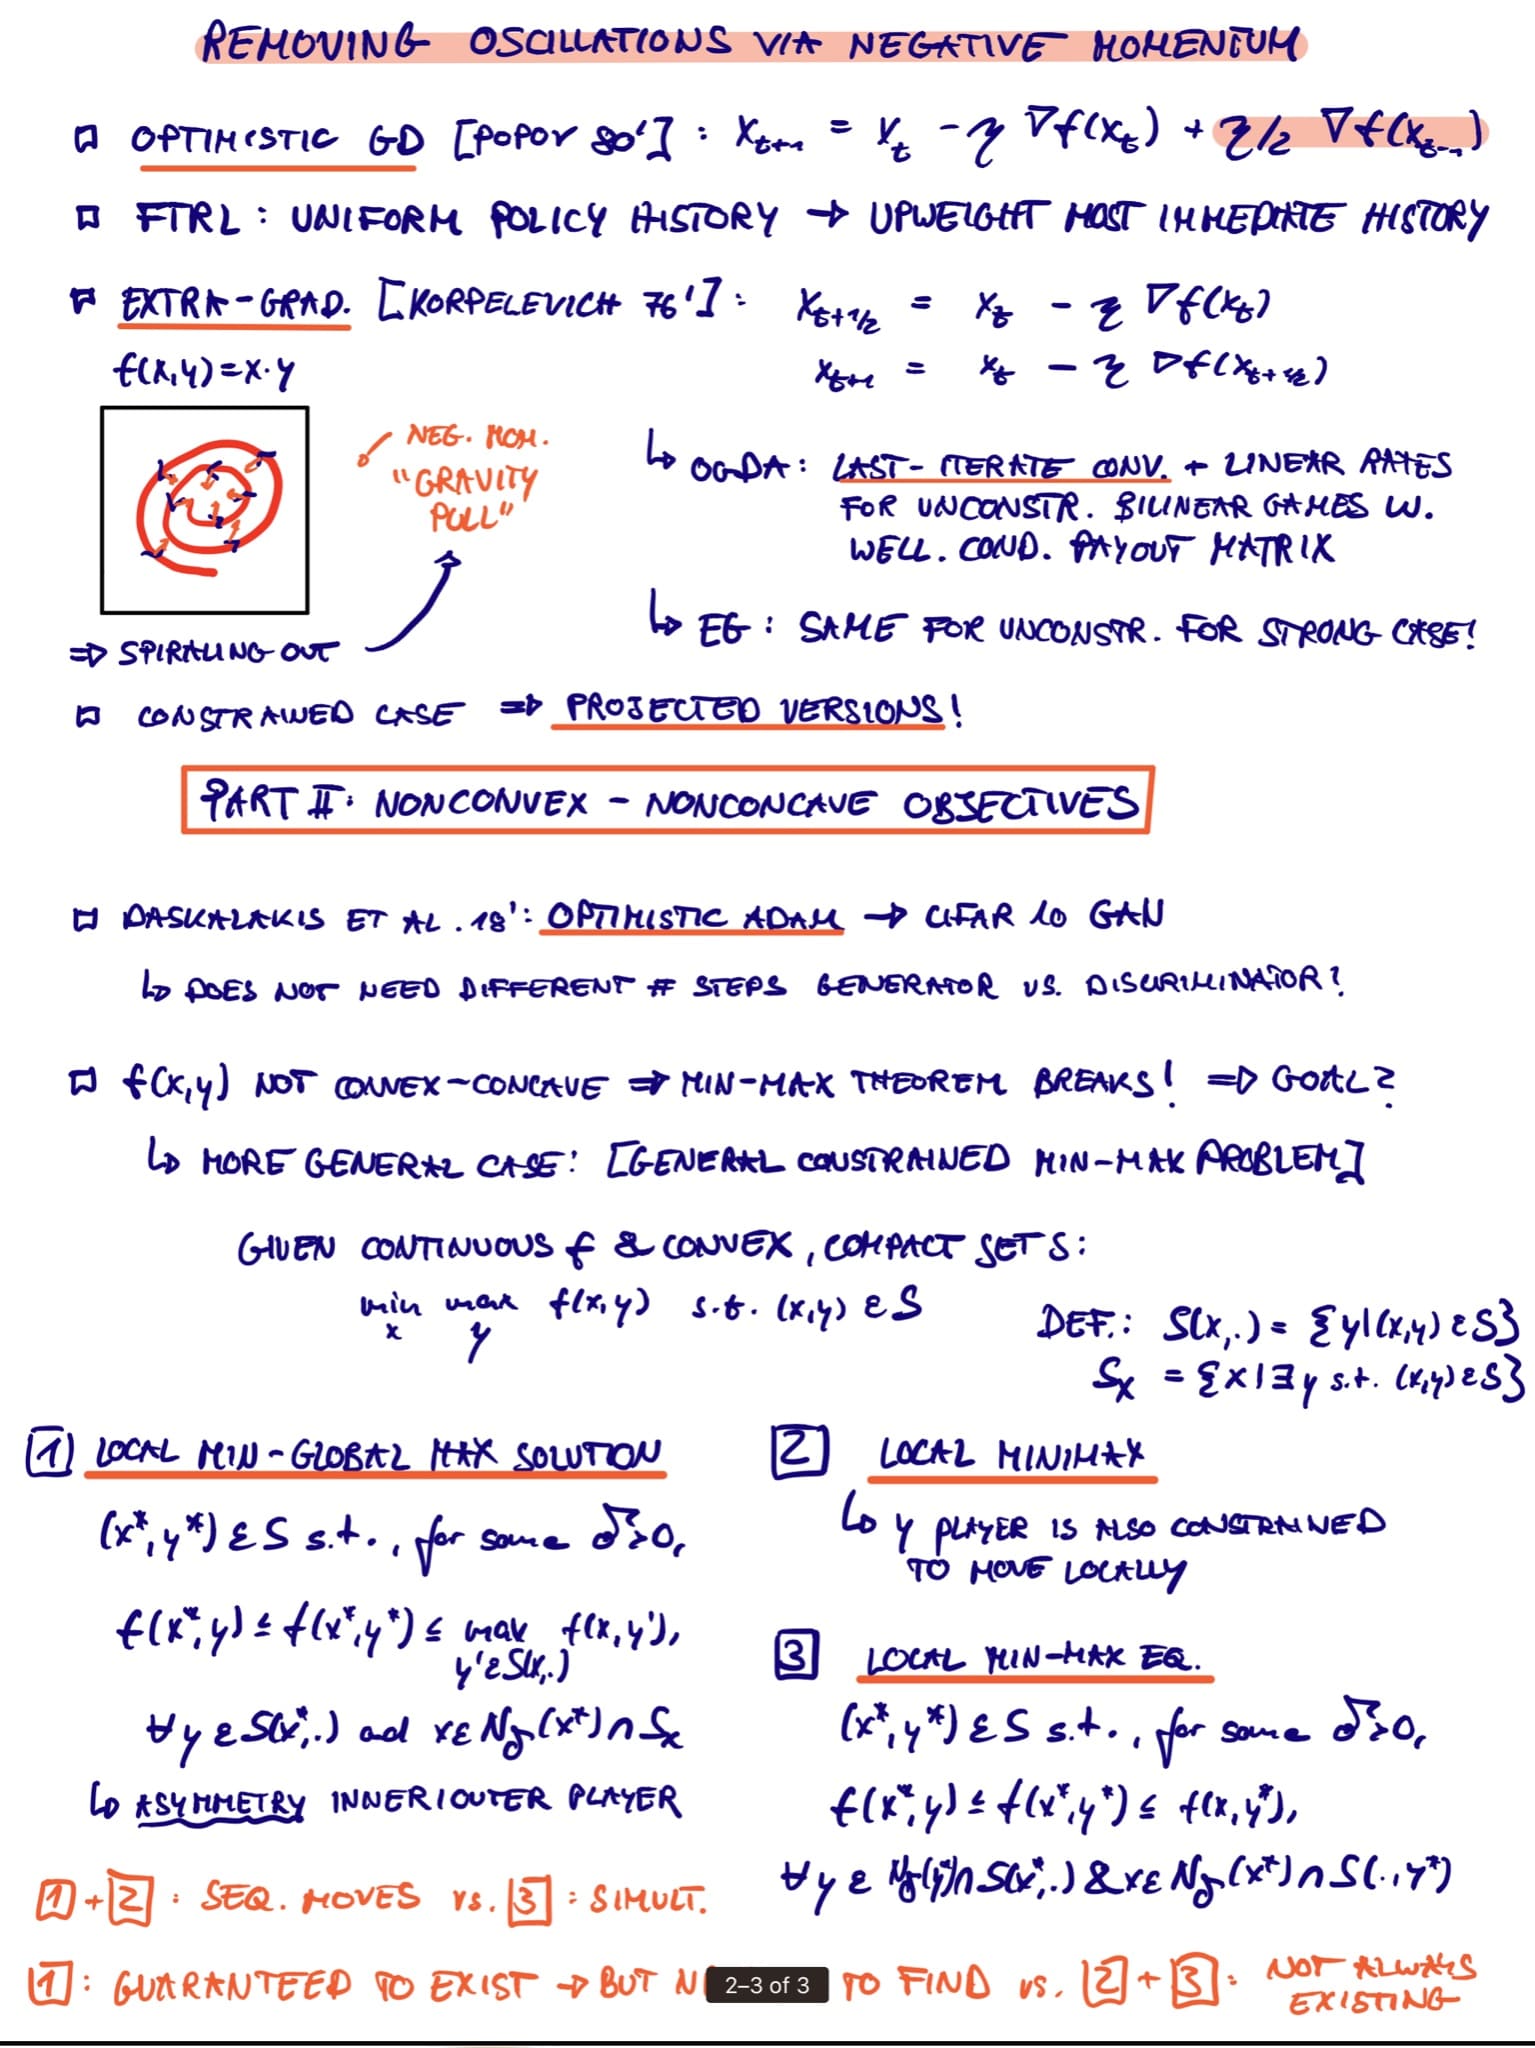 REMOVING OSCILLATIONS VIA NEGATIVE MOMENTUM
OPTIMISTIC GD [POPOV 80'] : x_{t+1} = x_t - η ∇f(x_t) + η/2 ∇f(x_{t-1})
FTRL : UNIFORM POLICY HISTORY → UPWEIGHT MOST IMMEDIATE HISTORY
EXTRA-GRAD. [KORPELEVICH 76'] : x_{t+1/2} = x_t - η ∇f(x_t)
x_{t+1} = x_t - η ∇f(x_{t+1/2})
f(x,y)=x·y
NEG. MOM.
"GRAVITY
PULL"
↳ OGDA : LAST-ITERATE CONV. + LINEAR RATES
FOR UNCONSTR. BILINEAR GAMES W.
WELL. COND. PAYOUT MATRIX
↳ EG : SAME FOR UNCONSTR. FOR STRONG CASE!
⇒ SPIRALING OUT
CONSTRAINED CASE ⇒ PROJECTED VERSIONS!
PART II: NONCONVEX - NONCONCAVE OBJECTIVES
DASKALAKIS ET AL. 18': OPTIMISTIC ADAM → CIFAR 10 GAN
↳ DOES NOT NEED DIFFERENT # STEPS GENERATOR VS. DISCRIMINATOR!
f(x,y) NOT CONVEX-CONCAVE ⇒ MIN-MAX THEOREM BREAKS! ⇒ GOAL?
↳ MORE GENERAL CASE: [GENERAL CONSTRAINED MIN-MAX PROBLEM]
GIVEN CONTINUOUS f & CONVEX, COMPACT SET S:
min_x max_y f(x,y) s.t. (x,y) ε S
DEF.: S(x,.) = {y|(x,y) ε S}
S_x = {x|∃y s.t. (x,y) ε S}
1 LOCAL MIN-GLOBAL MAX SOLUTION
(x*,y*) ε S s.t., for some δ>0,
f(x*,y) ≤ f(x*,y*) ≤ max_{y'εS(x,.)} f(x,y'),
∀y ε S(x*,.) and x ε N_δ(x*) ∩ S_x
↳ ASYMMETRY INNER/OUTER PLAYER
2 LOCAL MINIMAX
↳ Y PLAYER IS ALSO CONSTRAINED
TO MOVE LOCALLY
3 LOCAL MIN-MAX EQ.
(x*,y*) ε S s.t., for some δ>0,
f(x*,y) ≤ f(x*,y*) ≤ f(x,y*),
∀y ε N_δ(y*) ∩ S(x*,.) & x ε N_δ(x*) ∩ S(.,y*)
1 + 2 : SEQ. MOVES VS. 3 : SIMULT.
1 : GUARANTEED TO EXIST → BUT TO FIND VS. 2 + 3 : NOT ALWAYS
EXISTING
2–3 of 3